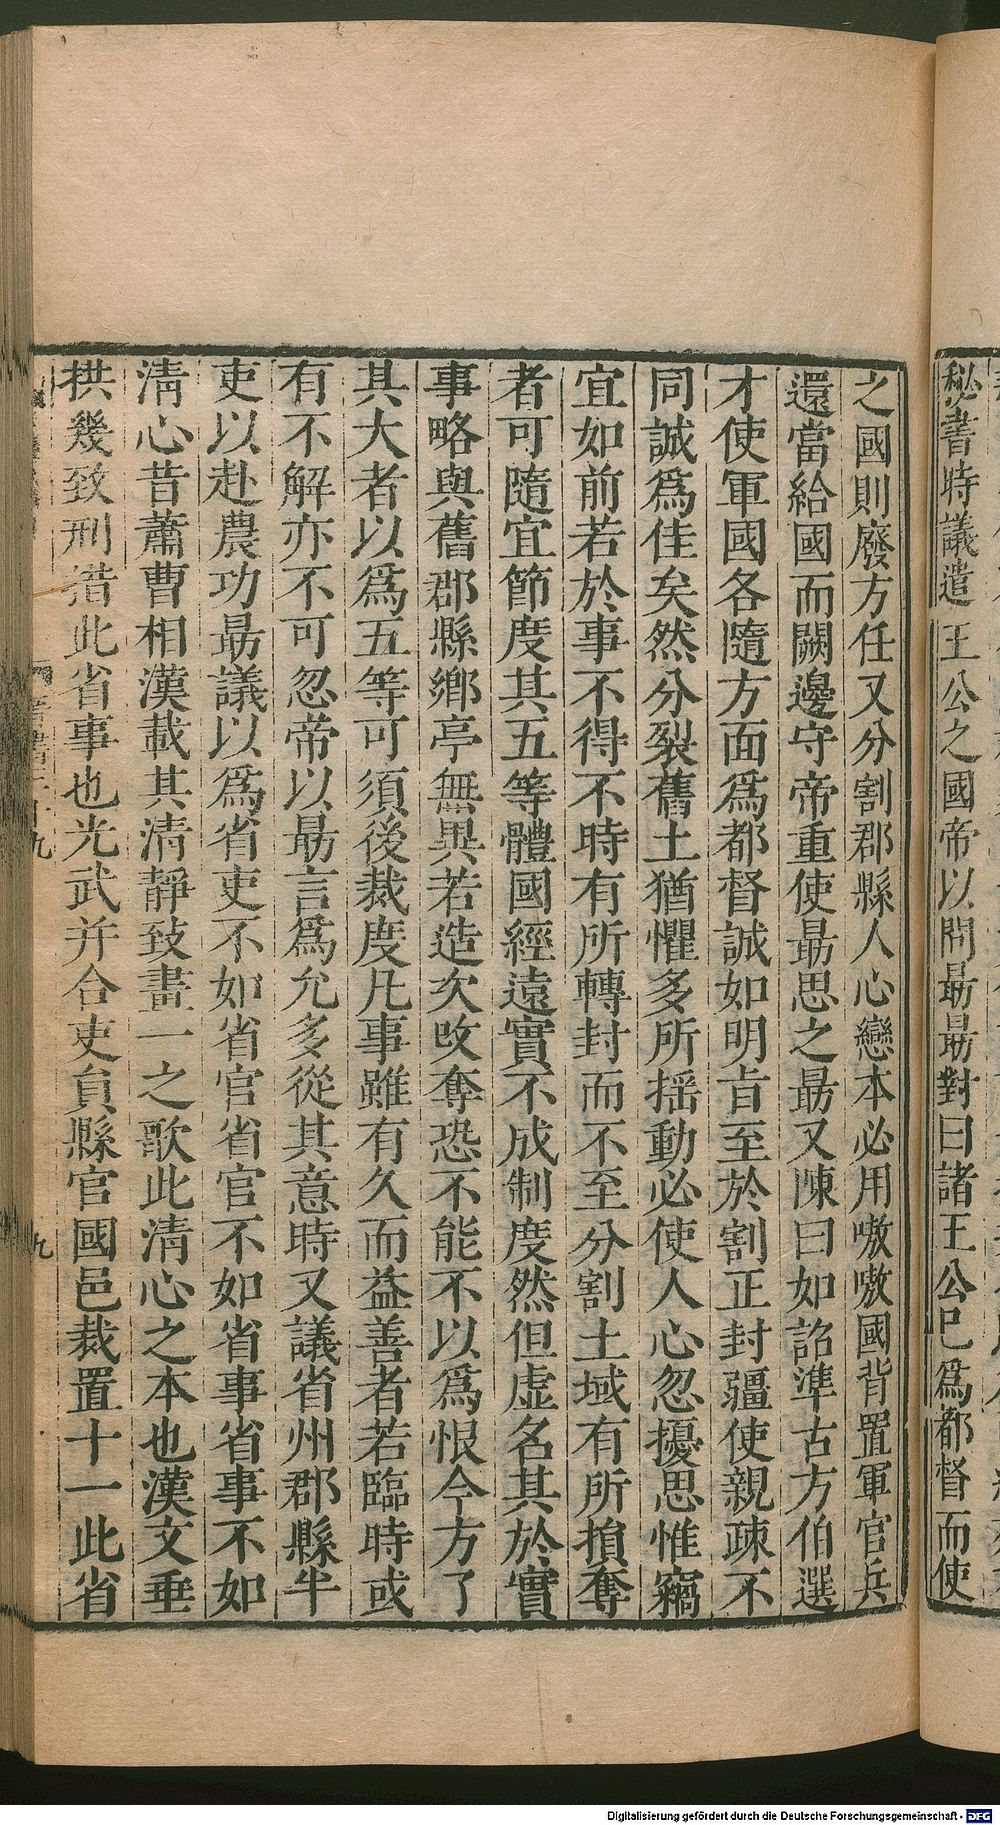 秘書時議遣王公之國帝以問勗勗對曰諸王公已爲都督而使
之國則廢方任又分割郡縣人心戀本必用嗷嗷國皆置軍官兵
還當給國而闕邊守帝重使勗思之勗又陳曰如詔準古方伯選
才使軍國各隨方面爲都督誠如明旨至於割正封疆使親疎不
同誠爲佳矣然分裂舊土猶懼多所揺動必使人心忽擾思惟竊
宜如前若於事不得不時有所轉封而不至分割土域有所損奪
者可隨宜節度其五等體國經遠實不成制度然但虚名其於實
事略與舊郡縣鄉亭無異若造次攺奪恐不能不以爲恨今方了
其大者以爲五等可須後裁度凡事雖有久而益善者若臨時或
有不解亦不可忽帝以勗言爲允多從其意時又議省州郡縣半
吏以赴農功勗議以爲省吏不如省官省官不如省事省事不如
清心昔蕭曹相漢載其清靜致畫一之歌此清心之本也漢文垂
拱幾致刑措此省事也光武并合吏貟縣官國邑裁置十一此省
九
Digitalisierung gefördert durch die Deutsche Forschungsgemeinschaft - DFG